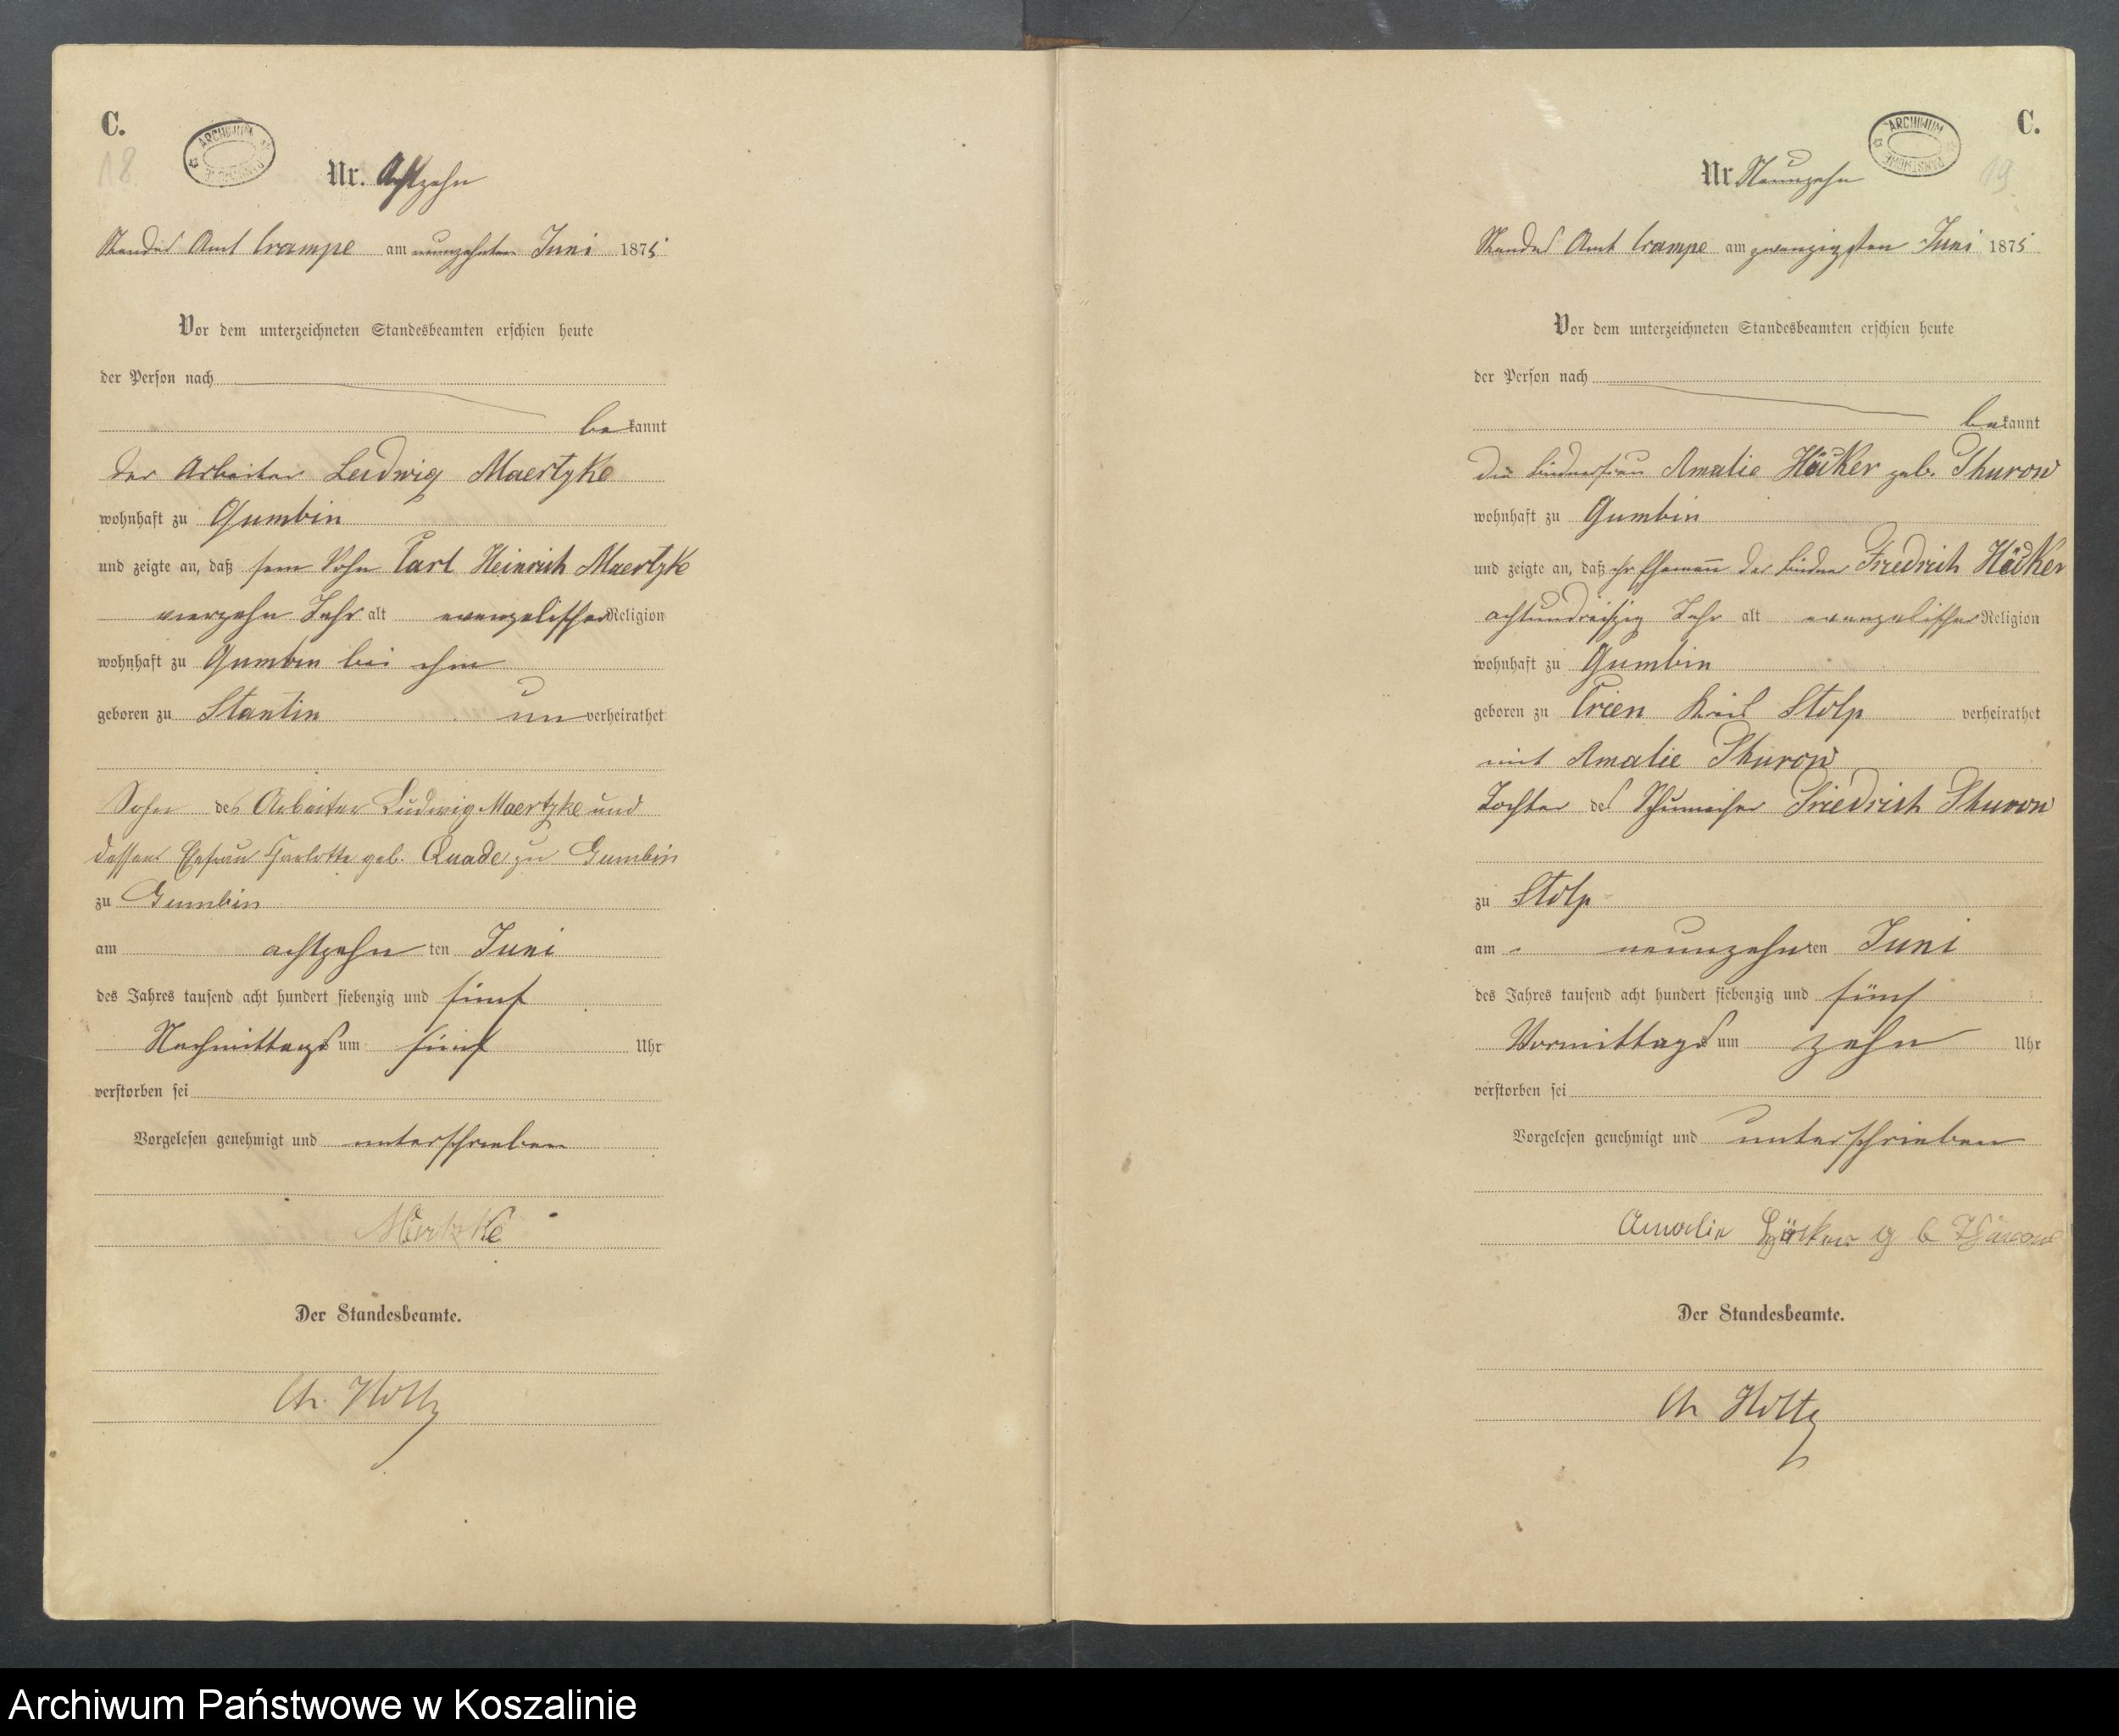 C.
18.
ARCHIWUM PAŃSTWOWE
Nr. Achtzehn
Standes Amt Crampe am neunzehnten Juni 1875
Vor dem unterzeichneten Standesbeamten erschien heute
der Person nach
bekannt
der Arbeiter Ludwig Maertzke
wohnhaft zu Gumbin
und zeigte an, daß sein Sohn Carl Heinrich Maertzke
vierzehn Jahr alt evangelischer Religion
wohnhaft zu Gumbin bei ihm
geboren zu Stantin unverheirathet
Sohn des Arbeiter Ludwig Maertzke und
dessen Ehefrau Harlotte geb. Quade zu Gumbin
zu Gumbin
am achtzehnten Juni
des Jahres tausend acht hundert siebenzig und fünf
Nachmittags um fünf Uhr
verstorben sei
Vorgelesen genehmigt und unterschrieben
Mertzke
Der Standesbeamte.
Ch. Holtz
C.
19.
ARCHIWUM PAŃSTWOWE
Nr Neunzehn
Standes Amt Crampe am zwanzigsten Juni 1875
Vor dem unterzeichneten Standesbeamten erschien heute
der Person nach
bekannt
die Büdnerfrau Amalie Häcker geb. Thurow
wohnhaft zu Gumbin
und zeigte an, daß ihr Ehemann der Büdner Friedrich Häcker
achtundreißig Jahr alt evangelischer Religion
wohnhaft zu Gumbin
geboren zu Crien Kreis Stolp verheirathet
mit Amalie Thurow
Tochter des Schumacher Friedrich Thurow
zu Stolp
am neunzehnten Juni
des Jahres tausend acht hundert siebenzig und fünf
Vormittags um zehn Uhr
verstorben sei
Vorgelesen genehmigt und unterschrieben
Amalie Häcker g b Thurow
Der Standesbeamte.
Ch Holtz
Archiwum Państwowe w Koszalinie